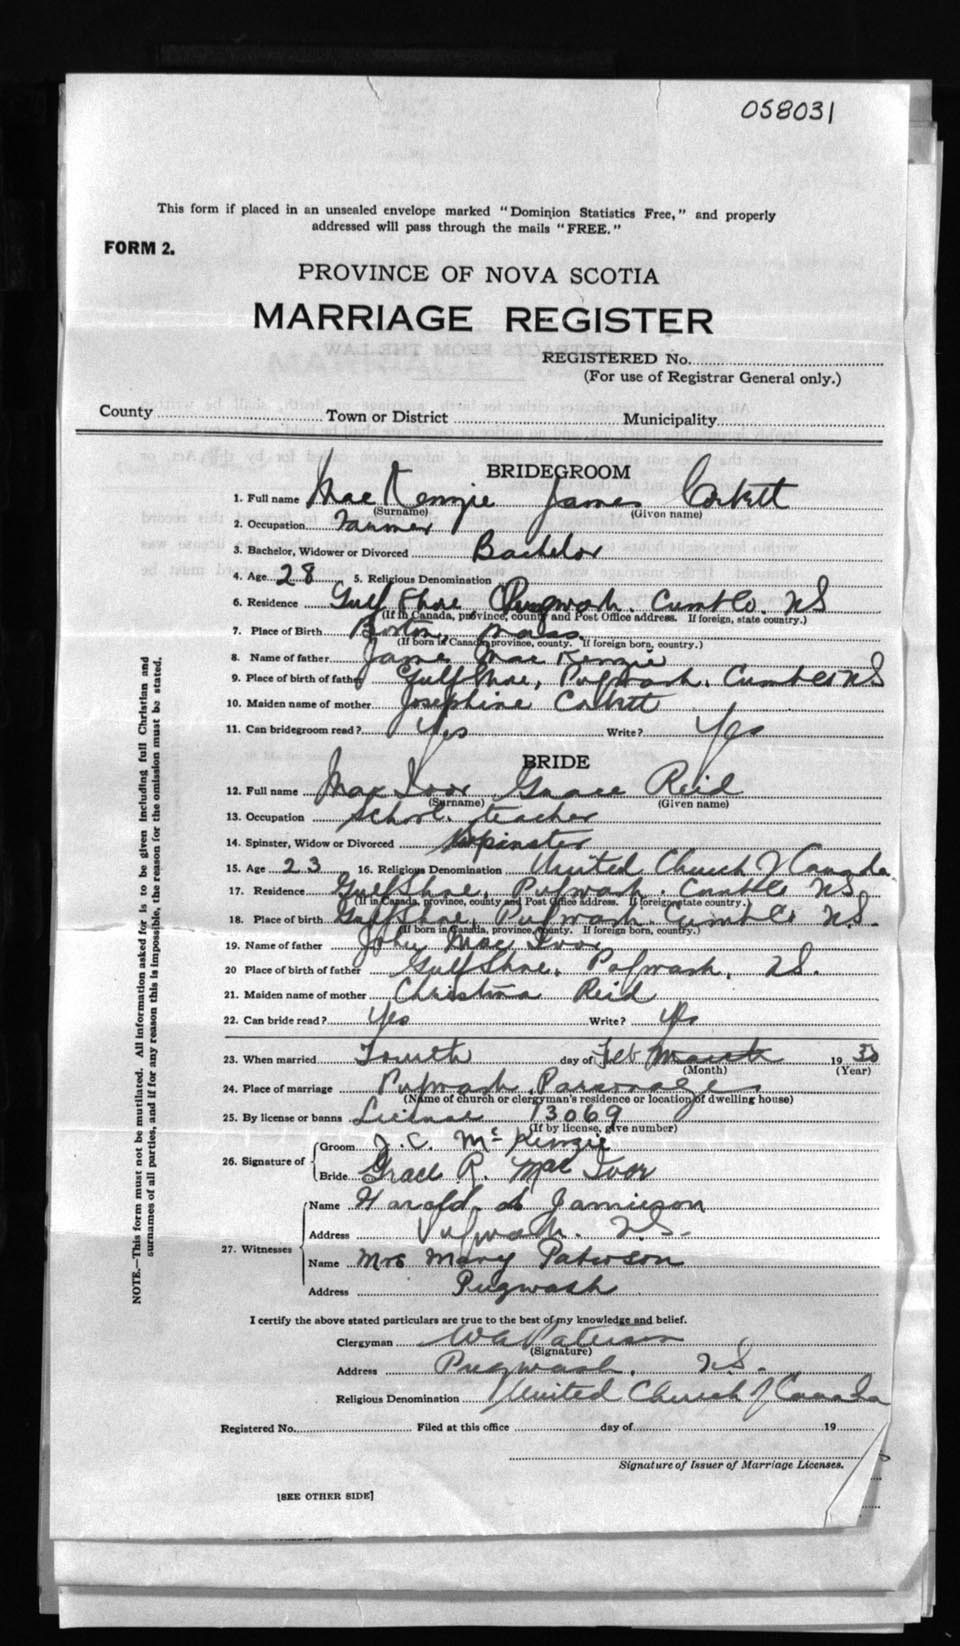 058031
This form if placed in an unsealed envelope marked "Dominion Statistics Free," and properly
addressed will pass through the mails "FREE."
FORM 2.
PROVINCE OF NOVA SCOTIA
MARRIAGE REGISTER
REGISTERED No.
(For use of Registrar General only.)
County Town or District Municipality
BRIDEGROOM
1. Full name MacKenzie James Corbett
(Surname) (Given name)
2. Occupation Farmer
3. Bachelor, Widower or Divorced Bachelor
4. Age 28 5. Religious Denomination
6. Residence Gulf Shore Pugwash. Cumb Co. NS
(If in Canada, province, county and Post Office address. If foreign, state country.)
7. Place of Birth Boston, Mass.
(If born in Canada, province, county. If foreign born, country.)
8. Name of father James MacKenzie
9. Place of birth of father Gulf Shore, Pugwash. Cumb Co NS
10. Maiden name of mother Josephine Corbett
11. Can bridegroom read? Yes Write? Yes
BRIDE
12. Full name MacIvor Grace Reid
(Surname) (Given name)
13. Occupation School teacher
14. Spinster, Widow or Divorced Spinster
15. Age 23 16. Religious Denomination United Church of Canada
17. Residence Gulf Shore, Pugwash. Cumb Co NS
(If in Canada, province, county and Post Office address. If foreign state country.)
18. Place of birth Gulf Shore, Pugwash. Cumb Co N.S.
(If born in Canada, province, county. If foreign born, country.)
19. Name of father John MacIvor
20 Place of birth of father Gulf Shore, Pugwash, NS.
21. Maiden name of mother Christina Reid
22. Can bride read? Yes Write? Yes
23. When married Fourth day of Feb March 19 30
(Month) (Year)
24. Place of marriage Pugwash Parsonage
(Name of church or clergyman's residence or location of dwelling house)
25. By license or banns License 13069
(If by license, give number)
26. Signature of Groom J. C. McKenzie
Bride Grace R. MacIvor
27. Witnesses Name Harold Jamieson
Address Pugwash. N.S.
Name Mrs Mary Paterson
Address Pugwash
I certify the above stated particulars are true to the best of my knowledge and belief.
Clergyman W A Paterson
(Signature)
Address Pugwash, N.S.
Religious Denomination United Church of Canada
Registered No. Filed at this office day of 19
Signature of Issuer of Marriage Licenses.
[SEE OTHER SIDE]
NOTE.—This form must not be mutilated. All information asked for is to be given including full Christian and
surnames of all parties, and if for any reason this is impossible, the reason for the omission must be stated.